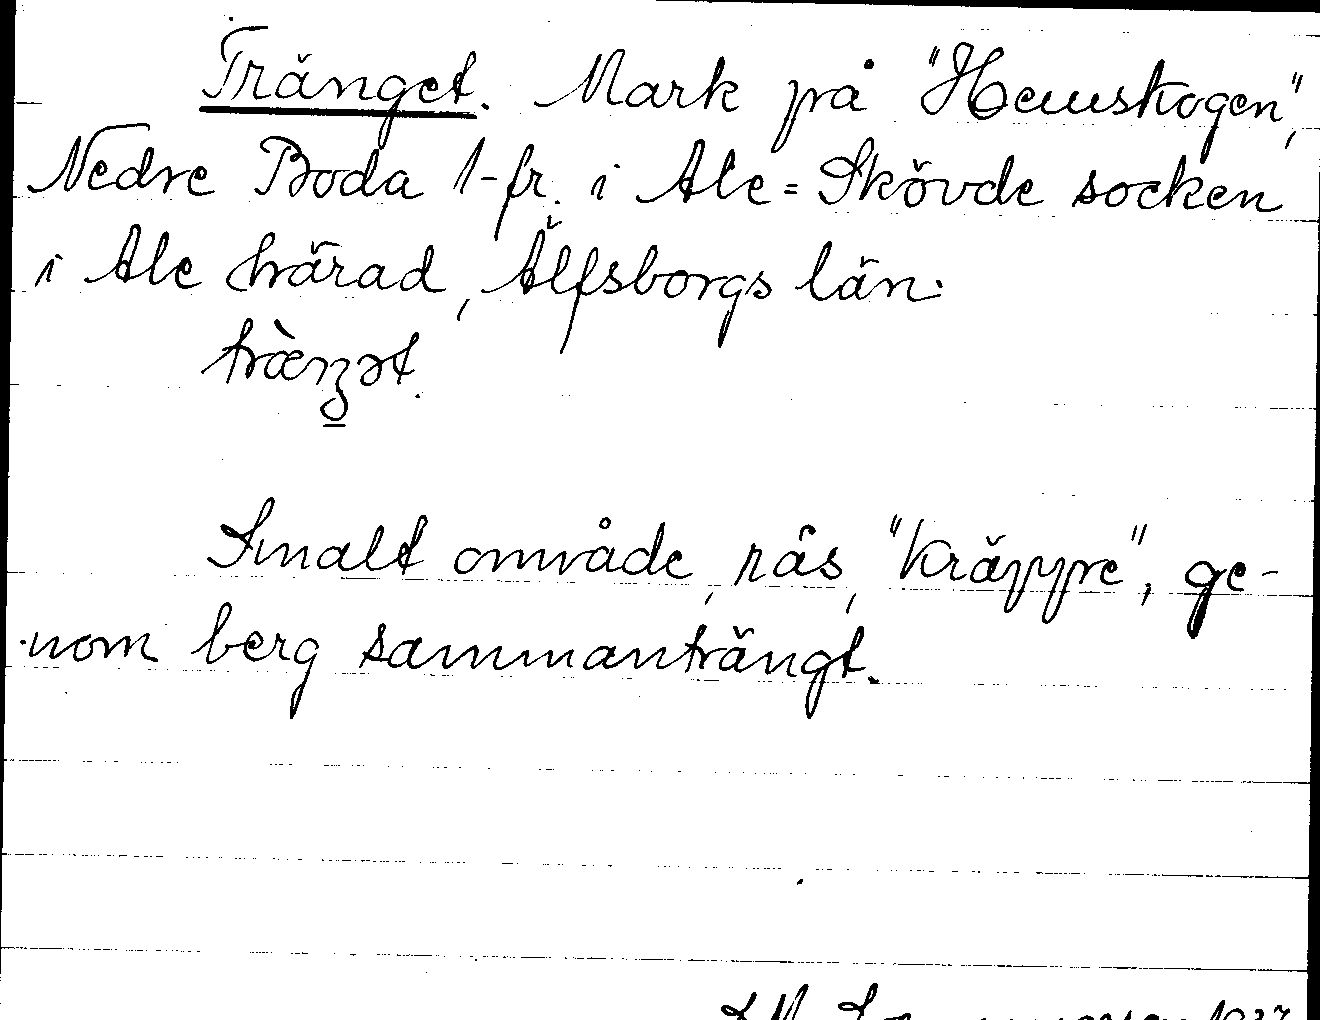 Tränget. Mark på "Hemskogen",
Nedre Boda 1-fr. i Ale=Skövde socken
i Ale härad, Älfsborgs län.
tràŋət.
Smalt område, rås, "kräppe", ge-
nom berg sammanträngt.
1937